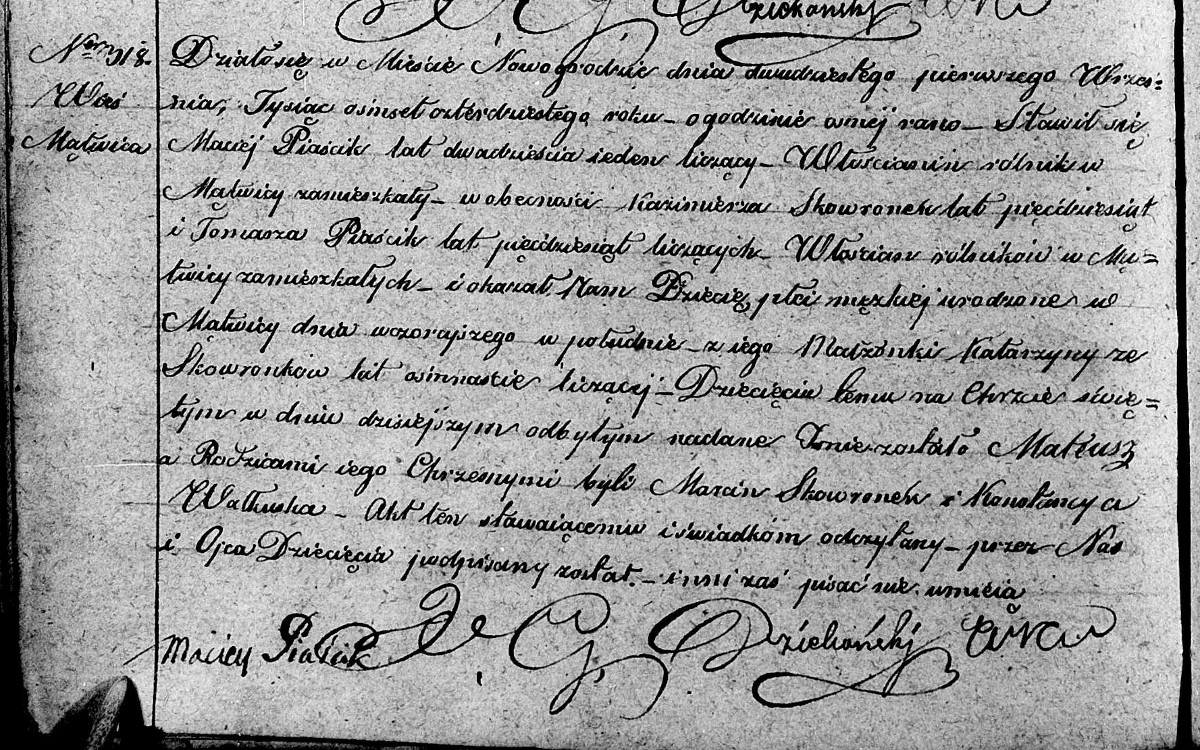 Dziekoński
Ner 318.
Wieś
Mątwica
Działo się w Mieście Nowogrodzie dnia dwudziestego pierwszego Wrześ=
nia, Tysiąc osmset czterdziestego roku – o godzinie osmej rano – Stawił się
Maciej Piaścik lat dwadzieścia ieden liczący – Włościanin rolnik w
Mątwicy zamieszkały – w obecności Kazimierza Skowronek lat pięćdziesiąt
i Tomasza Piaścik lat pięćdziesiąt liczących – Włościan rolników w Mą=
twicy zamieszkałych – i okazał Nam Dziecię płci męzkiej urodzone w
Mątwicy dnia wczorajszego w południe – z iego Małżonki Katarzyny ze
Skowronków lat osmnaście liczącej – Dziecięciu temu na Chrzcie świę=
tym w dniu dzisiejszym odbytym nadane Imie zostało Mateusz
a Rodzicami iego Chrzesnymi byli Marcin Skowronek i Konstancya
Walkuska – Akt ten stawaiącemu i świadkom odczytany – przez Nas
i Ojca Dziecięcia podpisany został. – inni zaś pisać nie umieią
Maciey Piaścik
Dziekoński